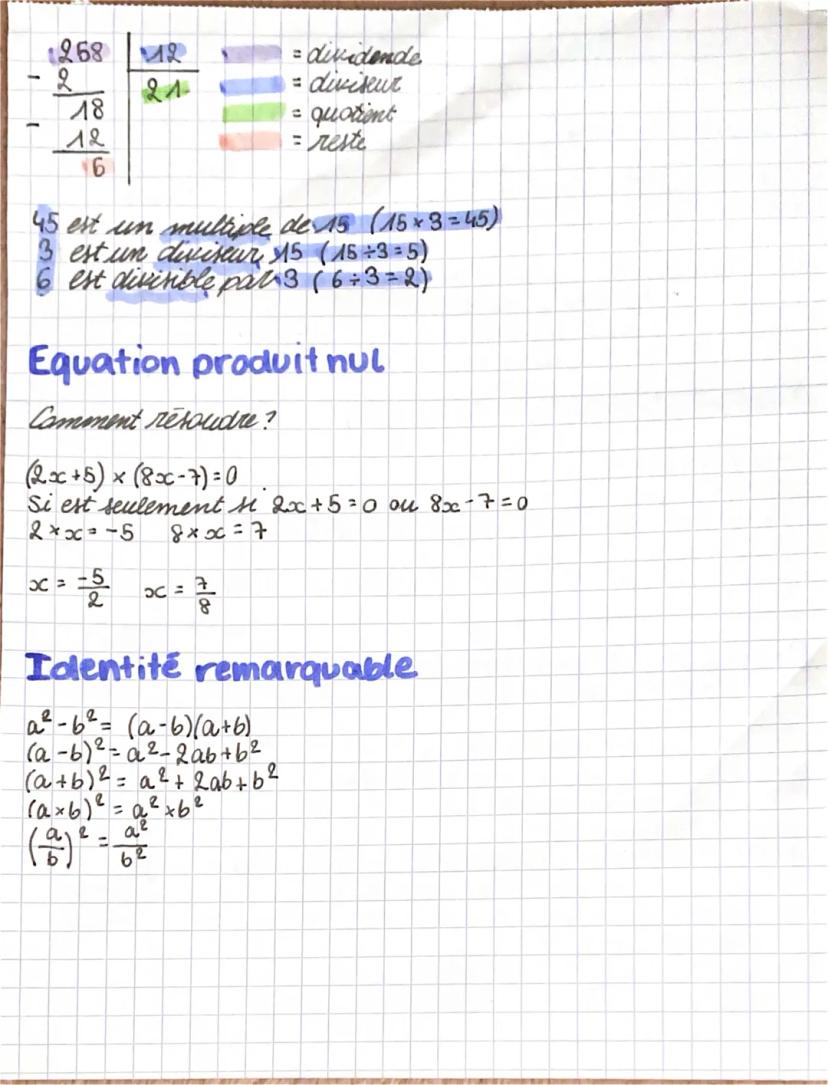 268 | 12
- 2 | 21
18
- 12
6
= dividende
= diviseur
= quotient
= reste
45 est un multiple de 15 (15 x 3 = 45)
3 est un diviseur 15 (15 ÷ 3 = 5)
6 est divisible par 3 (6 ÷ 3 = 2)
Equation produit nul
Comment résoudre ?
(2x+5) x (8x-7) = 0
Si est seulement si 2x+5 = 0 ou 8x-7 = 0
2 x x = -5 8 x x = 7
x = -5/2 x = 7/8
Identité remarquable
a² - b² = (a-b)(a+b)
(a-b)² = a² - 2ab + b²
(a+b)² = a² + 2ab + b²
(a x b)² = a² x b²
(a/b)² = a²/b²